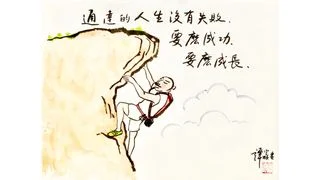 通達的人生沒有失敗.
要麽成功.
要麽成長.